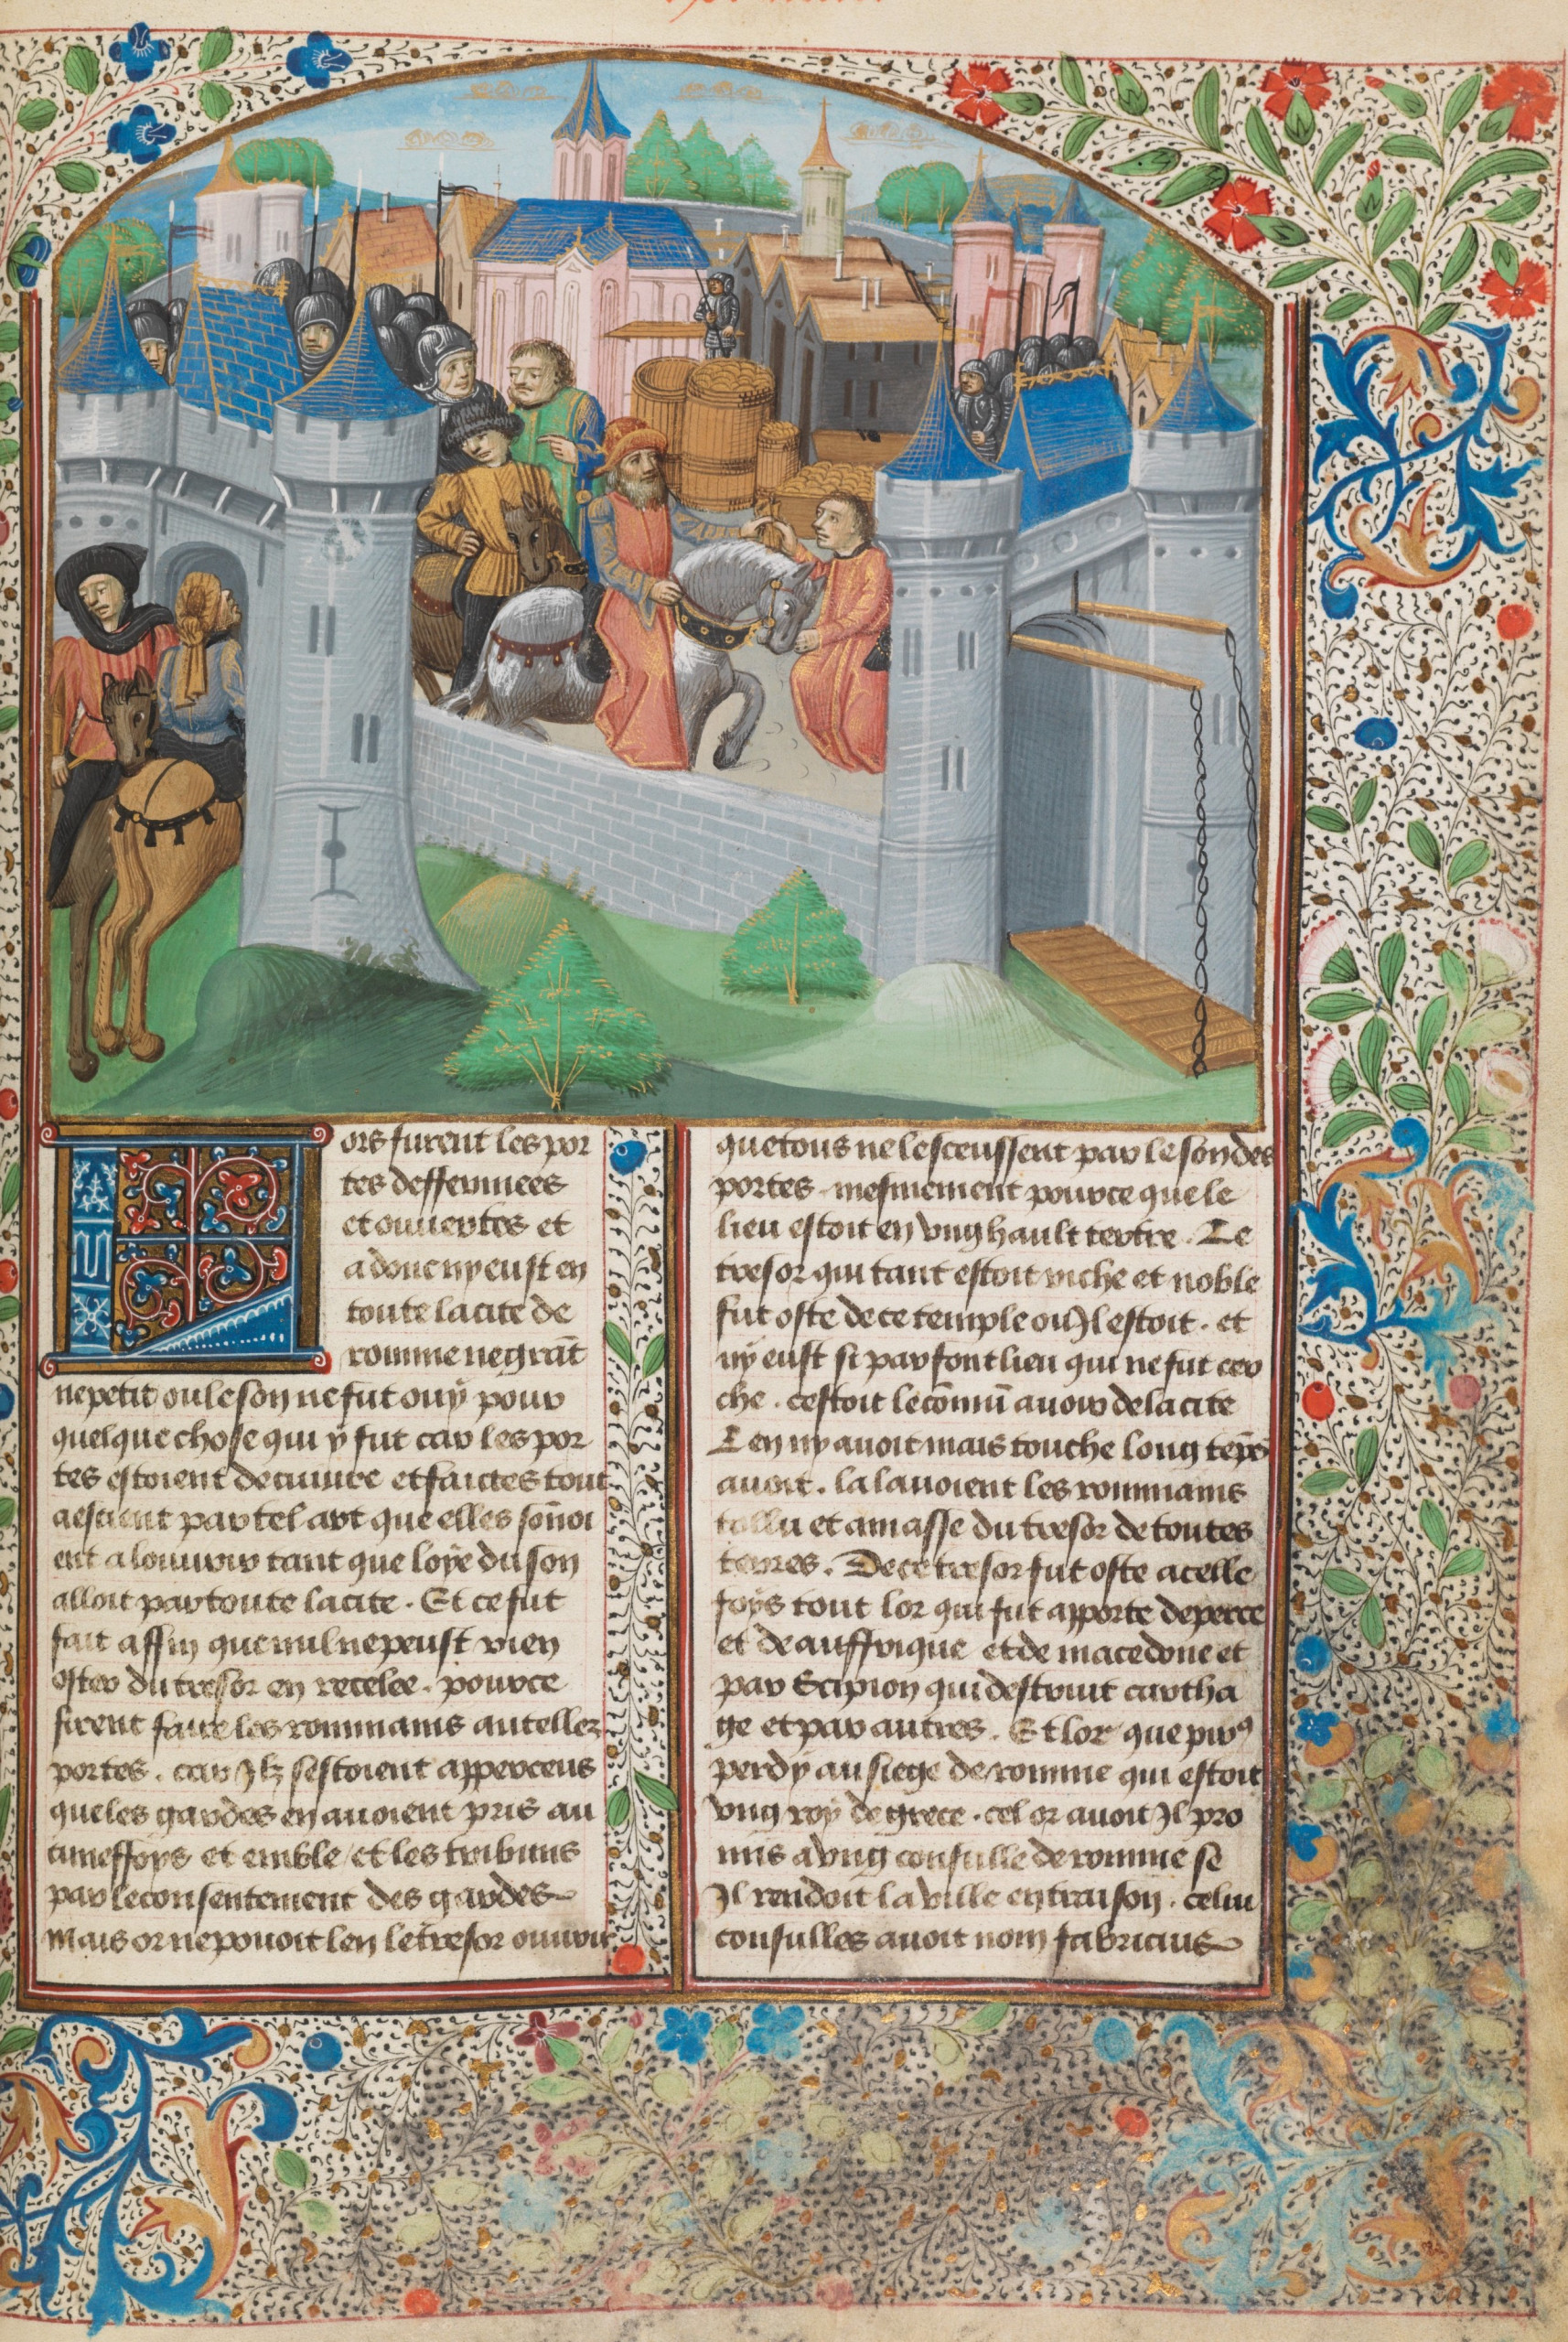 Lors furent les por
tes deffermees
et ouuertes et
adonc ny eust en
toute la cite de
romme ne grāt
ne petit ou le son ne fut ouy pour
quelque chose qui y fut car les por
tes estoient de cuiure et faictes tout
aescient par tel art que elles sōnoi
ent a louurir tant que loye du son
alloit par toute la cite . Et ce fut
fait affin que nul ne peust rien
oster du tresor en recelee . pource
firent faire les rommains autellez
portes . car Jlz sestoient apperceus
que les gardes en auoient pris au
cuneffoys et emble / et les tribuns
par le consentement des gardes
Mais or ne pouoit len le tresor ouurir
que tous ne le sceussent par le son des
portes mesmement pource que le
lieu estoit en vng hault tertre . Le
tresor qui tant estoit riche et noble
fut oste de ce temple ou Jl estoit . et
ny eust si parfont lieu qui ne fut cer
che . cestoit le cōmū auoir de la cite
Len ny auoit mais touche long tēps
auoit . la lauoient les rommains
tollu et amasse du tresor de toutes
terres . De ce tresor fut oste a celle
foys tout lor qui fut apporte de perce
et de auffrique et de macedone et
par Scipion qui destruit cartha
ge et par autres . Et lor que pirꝰ
perdy au siege de romme qui estoit
vng roy de grece . cel or auoit Jl pro
mis a vng consulle de romme se
Jl rendoit la ville en traison . celui
consulles auoit nom fabricius